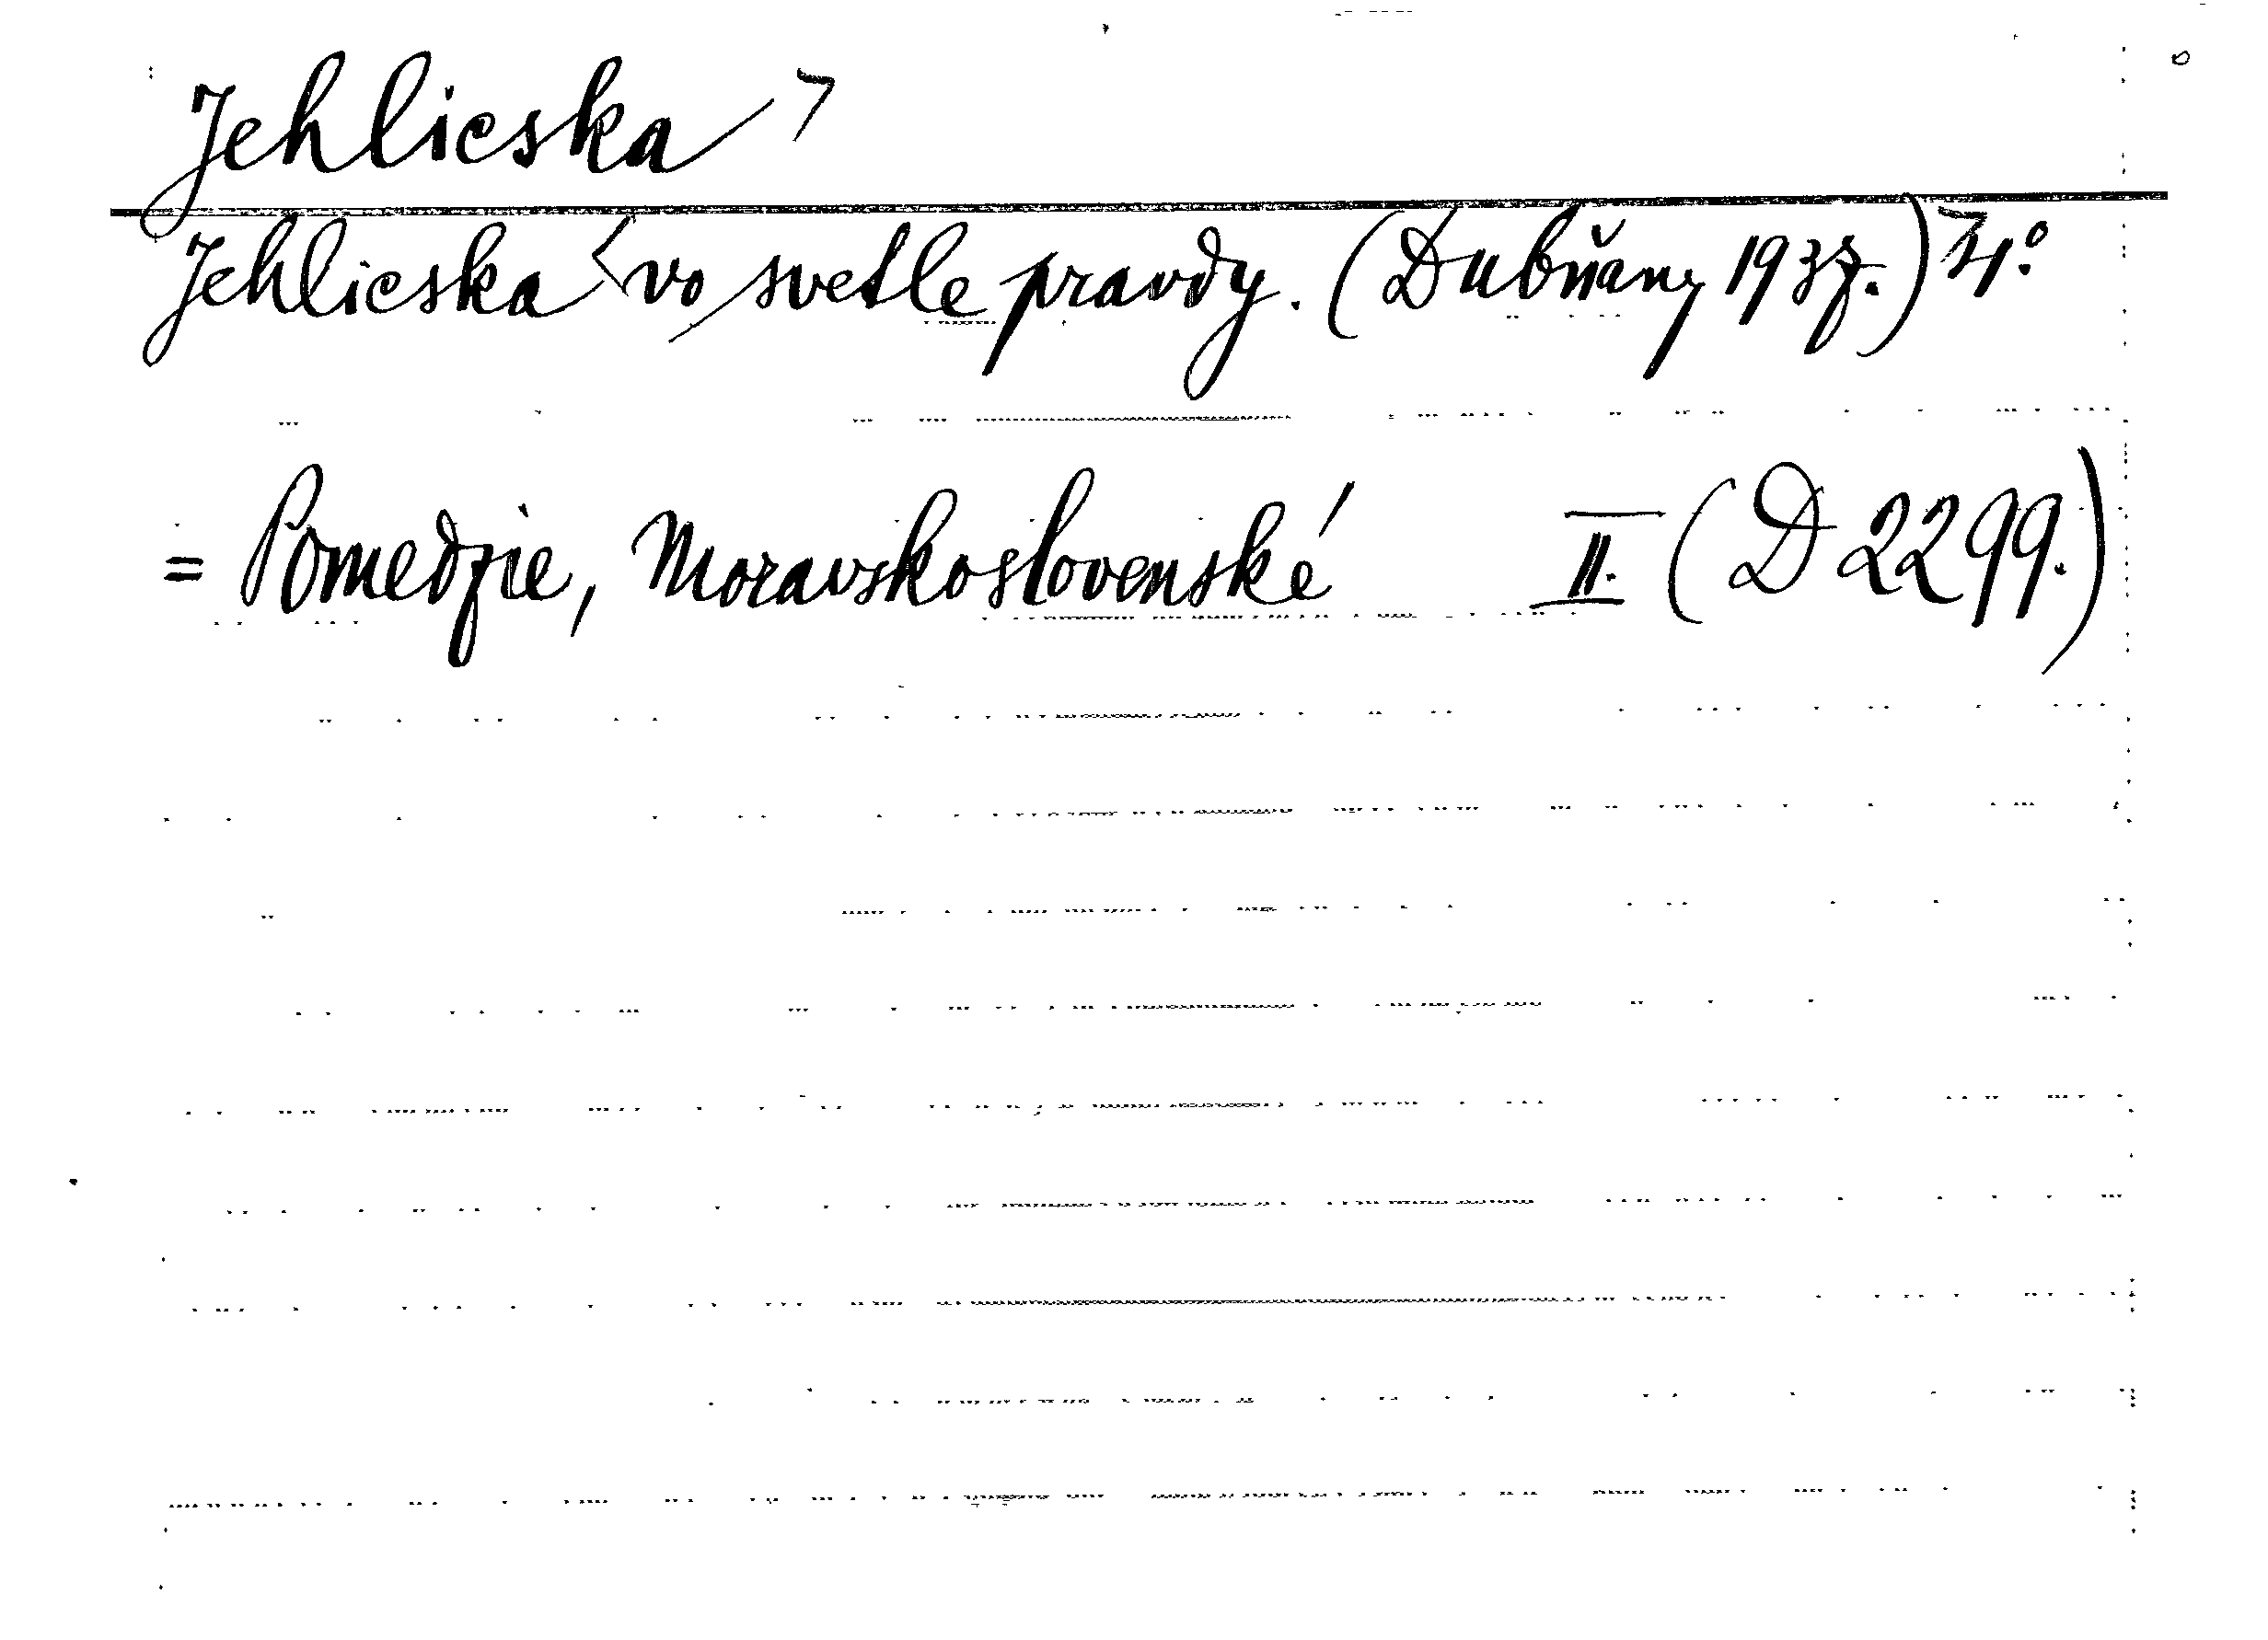 Jehlicska ⁊
Jehlicska < vo svetle pravdy. (Dubňany 1937.) 4°.
= Pomedzie, Moravskoslovenské II. (D 2299.)